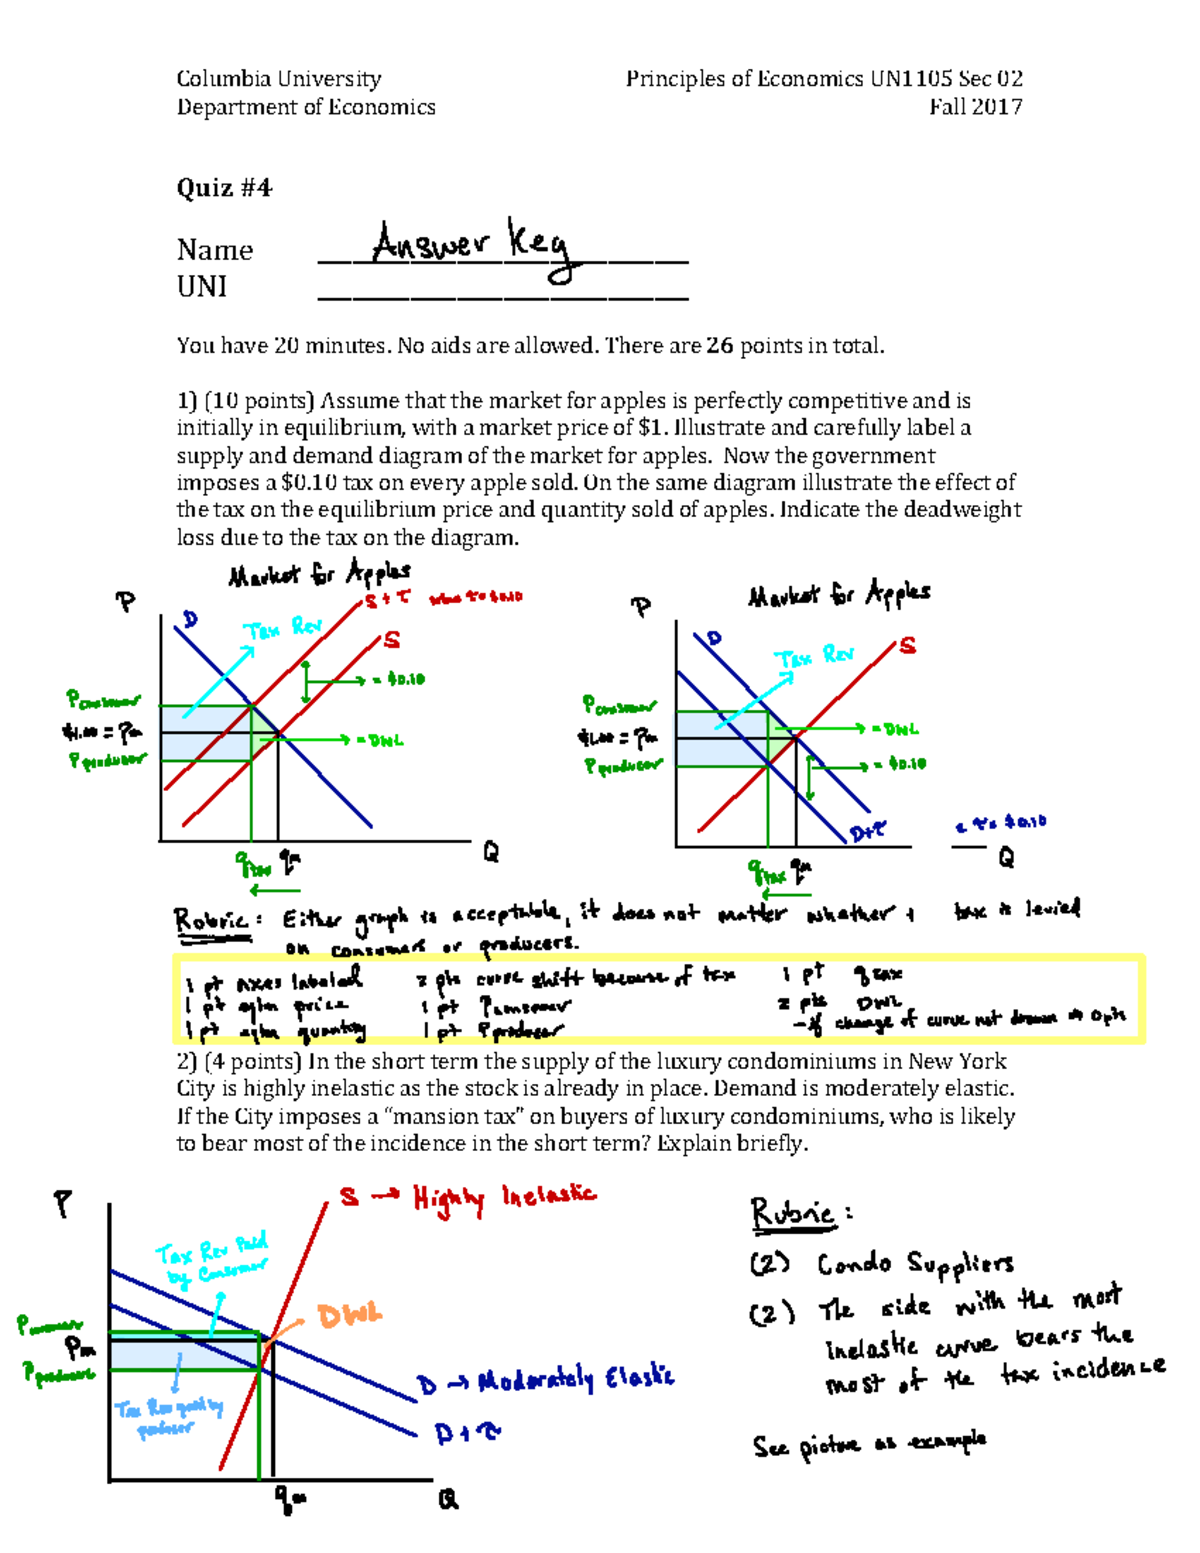 Columbia University
Principles of Economics UN1105 Sec 02
Department of Economics
Fall 2017
Quiz #4
Name Answer Key
UNI
You have 20 minutes. No aids are allowed. There are 26 points in total.
1) (10 points) Assume that the market for apples is perfectly competitive and is
initially in equilibrium, with a market price of $1. Illustrate and carefully label a
supply and demand diagram of the market for apples. Now the government
imposes a $0.10 tax on every apple sold. On the same diagram illustrate the effect of
the tax on the equilibrium price and quantity sold of apples. Indicate the deadweight
loss due to the tax on the diagram.
Market for Apples
P
D
Tax Rev
S + τ
S
= $0.10
Pconsumer
$1.00 = Pm
Pproducer
= DWL
qtax qm
Q
Market for Apples
P
D
Tax Rev
S
Pconsumer
$1.00 = Pm
Pproducer
= DWL
= $0.10
D+τ
τ = $0.10
qtax qm
Q
Rubric: Either graph is acceptable, it does not matter whether tax is levied
on consumers or producers.
1 pt axes labeled 2 pts curve shift because of tax 1 pt qtax
1 pt eqlm price 1 pt Pconsumer 2 pts DWL
1 pt eqlm quantity 1 pt Pproducer - if change of curve not drawn → 0 pts
2) (4 points) In the short term the supply of the luxury condominiums in New York
City is highly inelastic as the stock is already in place. Demand is moderately elastic.
If the City imposes a “mansion tax” on buyers of luxury condominiums, who is likely
to bear most of the incidence in the short term? Explain briefly.
P
S → Highly Inelastic
Tax Rev Paid
by Consumer
DWL
Pconsumer
Pm
Pproducer
Tax Rev paid by
producer
D → Moderately Elastic
D + τ
qm
Q
Rubric:
(2) Condo Suppliers
(2) The side with the most
inelastic curve bears the
most of the tax incidence
See picture as example